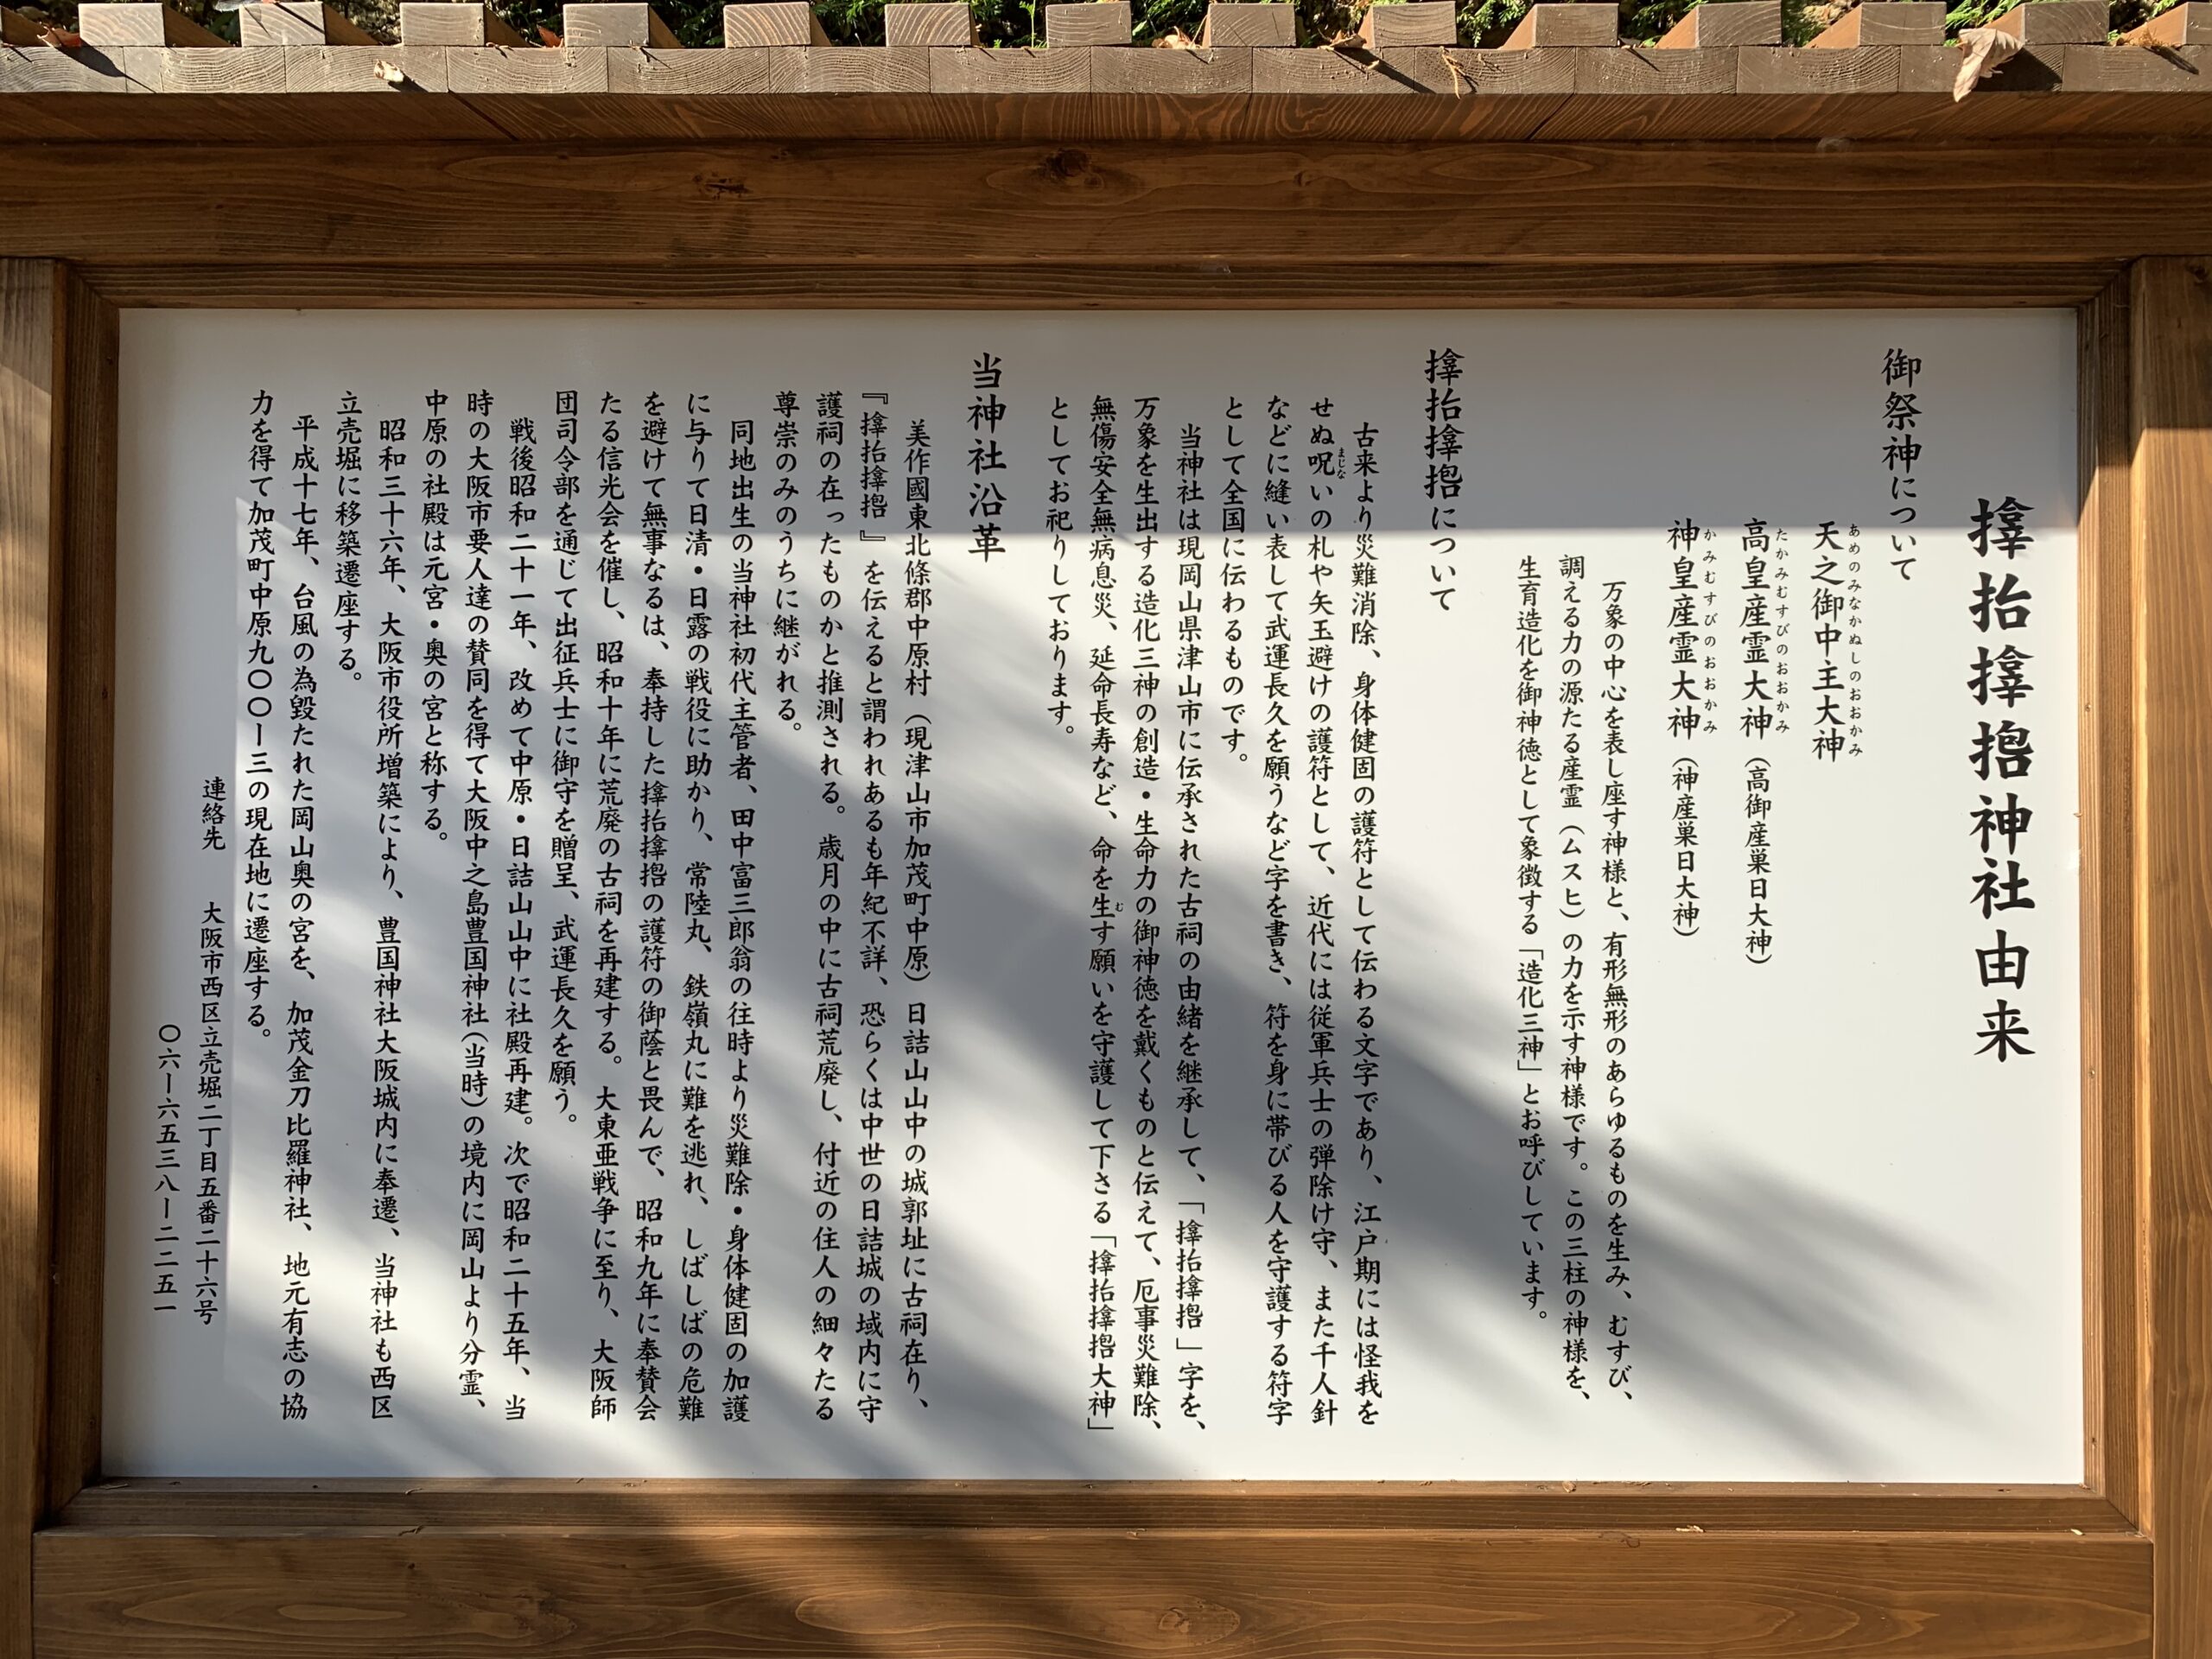 𪮷抬𪮷𪮇神社由来
御祭神について
天之御中主大神
あめのみなかぬしのおおかみ
高皇産霊大神（高御産巣日大神）
たかみむすびのおおかみ
神皇産霊大神（神産巣日大神）
かみむすびのおおかみ
万象の中心を表し座す神様と、有形無形のあらゆるものを生み、むすび、
調える力の源たる産霊（ムスヒ）の力を示す神様です。この三柱の神様を、
生育造化を御神徳として象徴する「造化三神」とお呼びしています。
𪮷抬𪮷𪮇について
古来より災難消除、身体健固の護符として伝わる文字であり、江戸期には怪我を
せぬ呪いの札や矢玉避けの護符として、近代には従軍兵士の弾除け守、また千人針
まじな
などに縫い表して武運長久を願うなど字を書き、符を身に帯びる人を守護する符字
として全国に伝わるものです。
当神社は現岡山県津山市に伝承された古祠の由緒を継承して、「𪮷抬𪮷𪮇」字を、
万象を生出する造化三神の創造・生命力の御神徳を戴くものと伝えて、厄事災難除、
無傷安全無病息災、延命長寿など、命を生す願いを守護して下さる「𪮷抬𪮷𪮇大神」
む
としてお祀りしております。
当神社沿革
美作國東北條郡中原村（現津山市加茂町中原）日詰山山中の城郭址に古祠在り、
『𪮷抬𪮷𪮇』を伝えると謂われあるも年紀不詳、恐らくは中世の日詰城の域内に守
護祠の在ったものかと推測される。歳月の中に古祠荒廃し、付近の住人の細々たる
尊崇のみのうちに継がれる。
同地出生の当神社初代主管者、田中富三郎翁の往時より災難除・身体健固の加護
に与りて日清・日露の戦役に助かり、常陸丸、鉄嶺丸に難を逃れ、しばしばの危難
を避けて無事なるは、奉持した𪮷抬𪮷𪮇の護符の御蔭と畏んで、昭和九年に奉賛会
たる信光会を催し、昭和十年に荒廃の古祠を再建する。大東亜戦争に至り、大阪師
団司令部を通じて出征兵士に御守を贈呈、武運長久を願う。
戦後昭和二十一年、改めて中原・日詰山山中に社殿再建。次で昭和二十五年、当
時の大阪市要人達の賛同を得て大阪中之島豊国神社（当時）の境内に岡山より分霊、
中原の社殿は元宮・奥の宮と称する。
昭和三十六年、大阪市役所増築により、豊国神社大阪城内に奉遷、当神社も西区
立売堀に移築遷座する。
平成十七年、台風の為毀たれた岡山奥の宮を、加茂金刀比羅神社、地元有志の協
力を得て加茂町中原九〇〇ー三の現在地に遷座する。
連絡先　大阪市西区立売堀二丁目五番二十六号
〇六ー六五三八ー二二五一